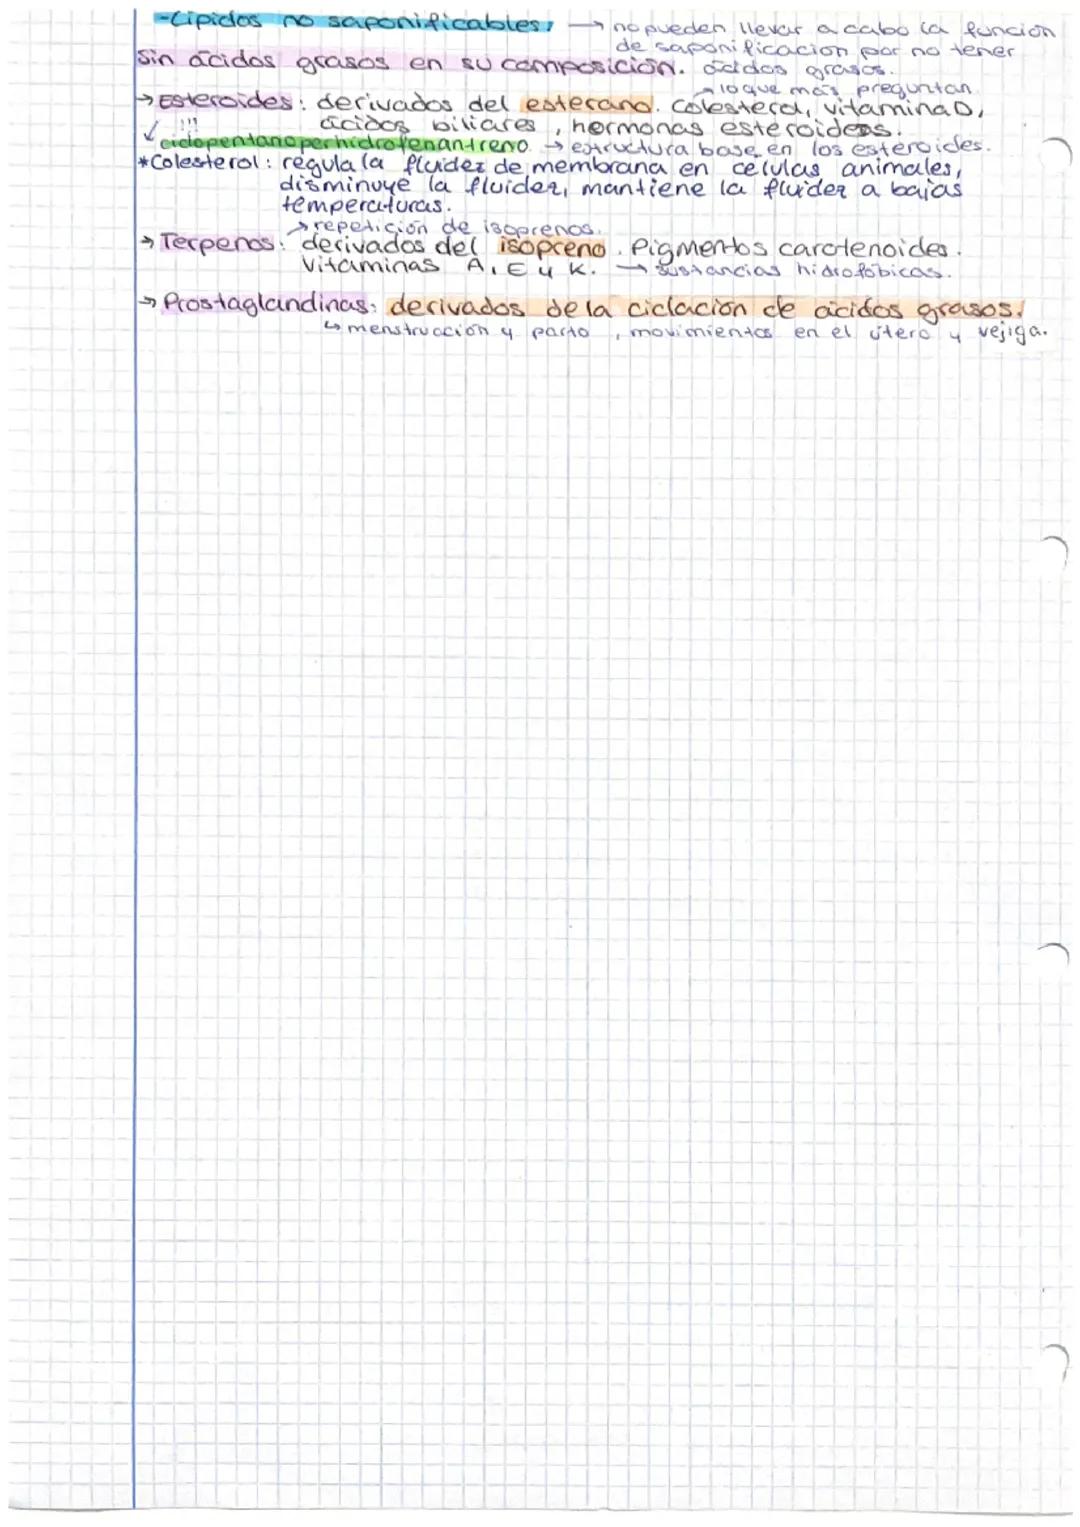 -Lípidos no saponificables: → no pueden llevar a cabo la función
de saponificacion por no tener
ácidos grasos.
Sin ácidos grasos en su composición.
→ lo que más preguntan.
→ Esteroides: derivados del esterano. Colesterol, vitamina D,
!!! ácidos biliares, hormonas esteroideas.
ciclopentanoperhidrofenantreno → estructura base en los esteroides.
*Colesterol: regula la fluidez de membrana en celulas animales,
disminuye la fluidez, mantiene la fluidez a bajas
temperaturas.
→ repetición de isoprenos.
→ Terpenos: derivados del isopreno. Pigmentos carotenoides.
Vitaminas A, E y K. → sustancias hidrofóbicas.
→ Prostaglandinas: derivados de la ciclación de ácidos grasos.
↳ menstrucción y parto, movimientos en el útero y vejiga.